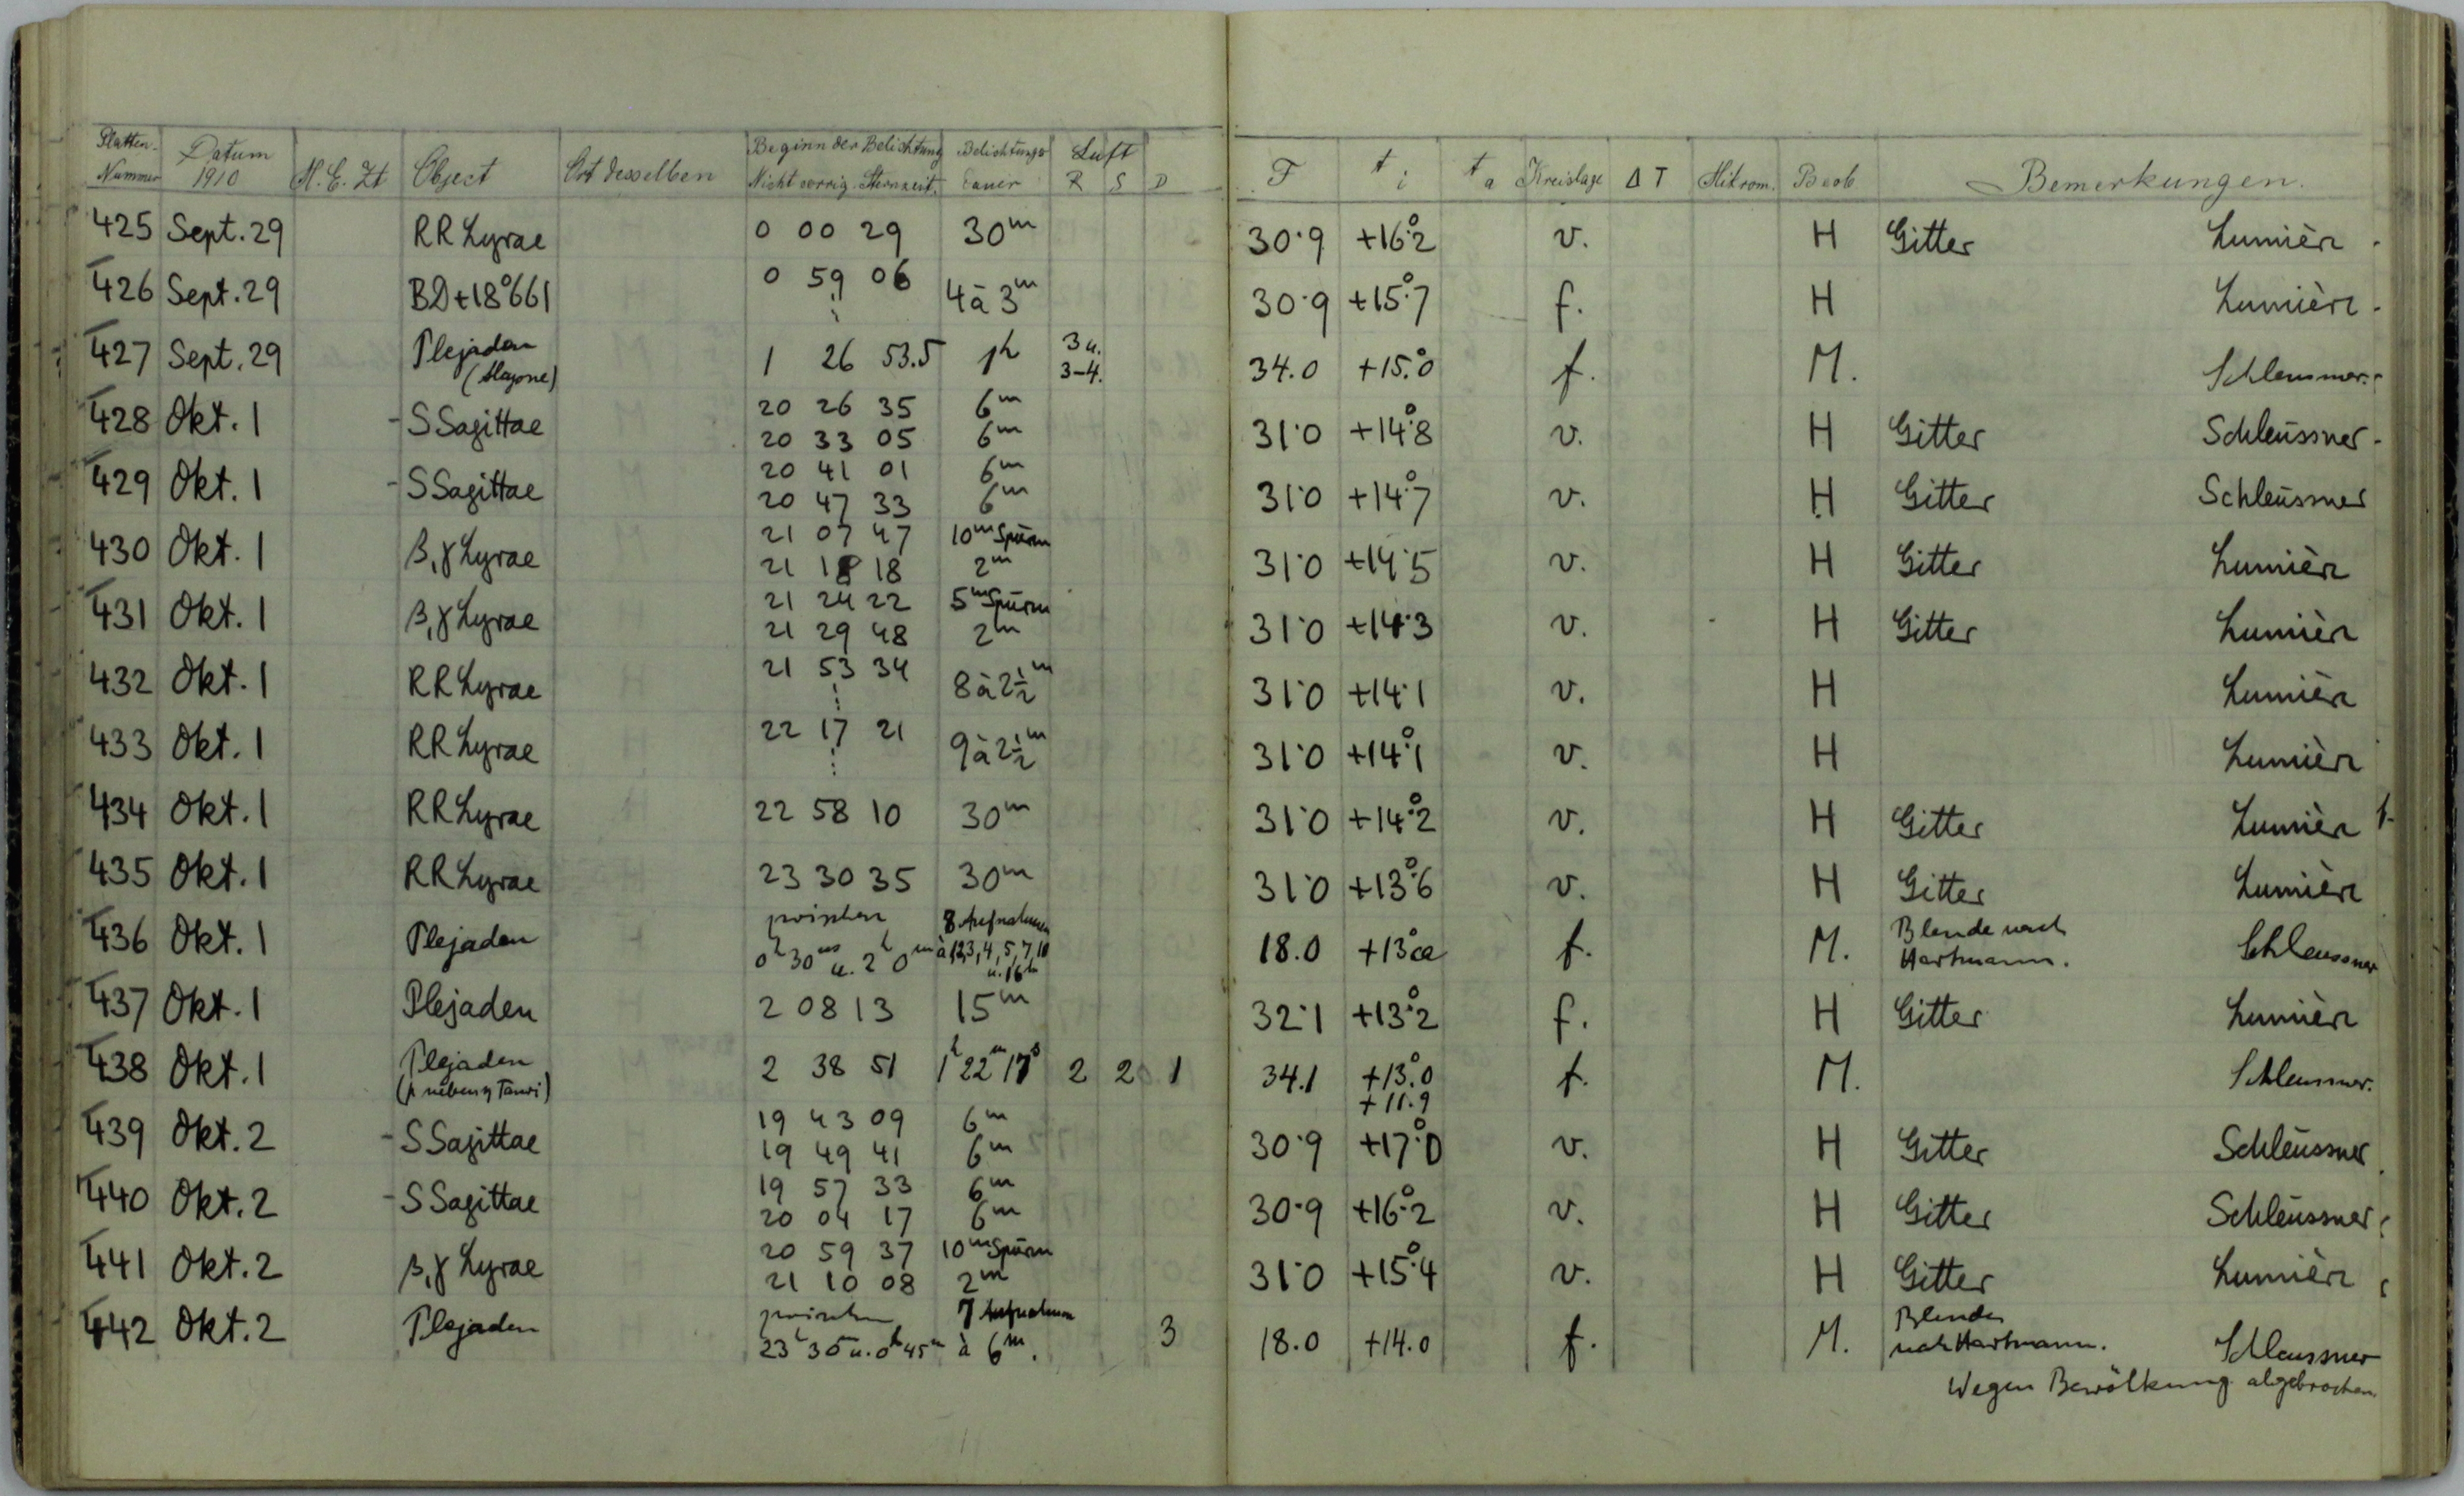 Platten-Nummer Datum 1910 M. E. Zt Object Ort desselben Beginn der Belichtung Nicht corrig. Sternzeit. Belichtungs dauer Luft R S D F t i t a Kreislage Δ T Mikrom. Beob Bemerkungen.
425 Sept. 29 RR Lyrae 0 00 29 30m 30.9 +16°.2 v. H Gitter Lumière
426 Sept. 29 BD+18°661 0 59 06 4 à 3m 30.9 +15°.7 f. H Lumière
427 Sept. 29 Plejaden (Alcyone) 1 26 53.5 1h 3 u. 3-4. 34.0 +15.°0 f. M. Schleussner.
428 Okt. 1 - S Sagittae 20 26 35 6m 31.0 +14°.8 v. H Gitter Schleussner
20 33 05 6m
429 Okt. 1 - S Sagittae 20 41 01 6m 31.0 +14°.7 v. H Gitter Schleussner
20 47 33 6m
430 Okt. 1 β, γ Lyrae 21 07 47 10m Spuren 31.0 +14.5 v. H Gitter Lumière
21 18 18 2m
431 Okt. 1 β, γ Lyrae 21 24 22 5m Spuren 31.0 +14.3 v. H Gitter Lumière
21 29 48 2m
432 Okt. 1 RR Lyrae 21 53 34 8 à 2½m 31.0 +14.1 v. H Lumière
433 Okt. 1 RR Lyrae 22 17 21 9 à 2½m 31.0 +14°.1 v. H Lumière
434 Okt. 1 RR Lyrae 22 58 10 30m 31.0 +14°.2 v. H Gitter Lumière
435 Okt. 1 RR Lyrae 23 30 35 30m 31.0 +13°.6 v. H Gitter Lumière
436 Okt. 1 Plejaden zwischen 0h 30m u. 2h 0m 8 Aufnahmen à 1,2,3,4,5,7,10 u. 16m 18.0 +13° ca f. M. Blende nach Hartmann. Schleussner
437 Okt. 1 Plejaden 2 08 13 15m 32.1 +13°.2 f. H Gitter Lumière
438 Okt. 1 Plejaden (p neben η Tauri) 2 38 51 1h 22m 17s 2 2 1 34.1 +13.°0 +11.9 f. M. Schleussner.
439 Okt. 2 - S Sagittae 19 43 09 6m 30.9 +17°.0 v. H Gitter Schleussner
19 49 41 6m
440 Okt. 2 - S Sagittae 19 57 33 6m 30.9 +16°.2 v. H Gitter Schleussner
20 04 17 6m
441 Okt. 2 β, γ Lyrae 20 59 37 10m Spuren 31.0 +15°.4 v. H Gitter Lumière
21 10 08 2m
442 Okt. 2 Plejaden zwischen 23h 35 u. 0h 45m 7 Aufnahmen à 6m. 3 18.0 +14.0 f. M. Blenden nach Hartmann. Schleussner
Wegen Bewölkung abgebrochen.